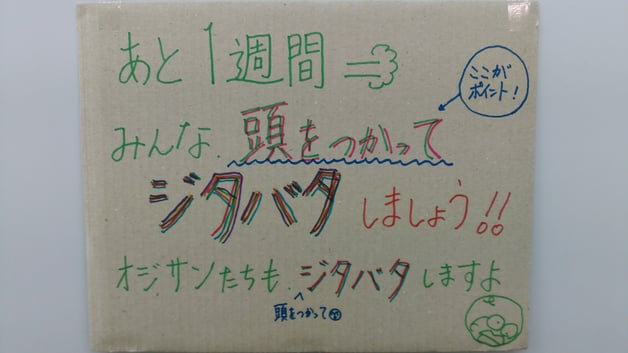 あと1週間
ここが
ポイント!
みんな 頭をつかって
ジタバタ しましょう!!
オジサンたちも ジタバタ しますよ
頭をつかって